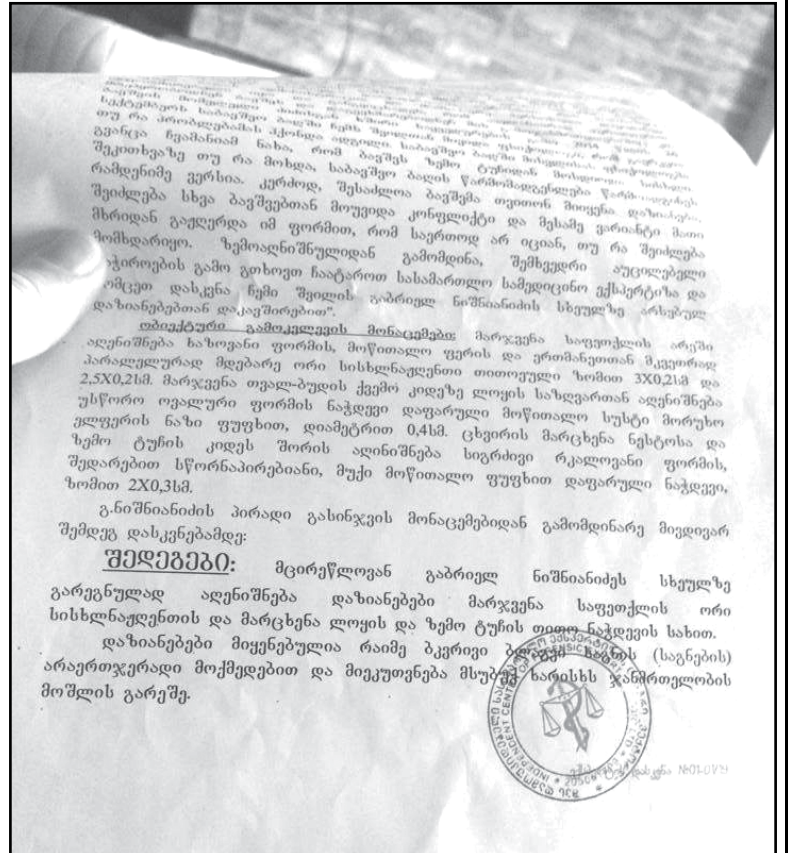 თუ რა პრობლემას ჰქონდა ადგილი საბავშვო ბაღში
გვანცა ჩვამანიამ ნახა, რომ ბავშვს ზემო ტუჩიდან
შეკითხვაზე თუ რა მოხდა, საბავშვო ბაღის წარმომადგენლება
რამდენიმე ვერსია. კერძოდ, შესაძლოა ბავშვმა თვითონ მიიყენა დაზიანება,
შეიძლება სხვა ბავშვებთან მოუვიდა კონფლიქტი და მესამე ვარიანტი მათი
მხრიდან გაჟღერდა იმ ფორმით, რომ საერთოდ არ იციან, თუ რა შეიძლება
მომხდარიყო. ზემოაღნიშნულიდან გამომდინა, შემხვედრი აუცილებელი
ჭიროების გამო გთხოვთ ჩაატაროთ სასამართლო სამედიცინო ექსპერტიზა და
ომცეთ დასკვნა ჩემი შვილის გაბრიელ ნიშნიანიძის სხეულზე არსებულ
დაზიანებებთან დაკავშირებით".
ობიექტური გამოკვლევის მონაცემები: მარჯვენა საფეთქლის არეში
აღენიშნება ხაზოვანი ფორმის, მოწითალო ფერის და ერთმანეთთან მკვეთრად
პარალელურად მდებარე ორი სისხლნაჟღენთი თითოეული ზომით 3X0,2სმ და
2,5X0,2სმ. მარჯვენა თვალ-ბუდის ქვემო კიდეზე ლოყის საზღვართან აღენიშნება
უსწორო ოვალური ფორმის ნაჭდევი დაფარული მოწითალო სუსტი მორუხო
ელფერის ნაზი ფუფხით, დიამეტრით 0,4სმ. ცხვირის მარცხენა ნესტოსა და
ზემო ტუჩის კიდეს შორის აღინიშნება სიგრძივი რკალოვანი ფორმის,
შედარებით სწორნაპირებიანი, მუქი მოწითალო ფუფხით დაფარული ნაჭდევი,
ზომით 2X0,3სმ.
გ.ნიშნიანიძის პირადი გასინჯვის მონაცემებიდან გამომდინარე მივდივარ
შემდეგ დასკვნებამდე:
შედეგები: მცირეწლოვან გაბრიელ ნიშნიანიძეს სხეულზე
გარეგნულად აღენიშნება დაზიანებები მარჯვენა საფეთქლის ორი
სისხლნაჟღენთის და მარცხენა ლოყის და ზემო ტუჩის თითო ნაჭდევის სახით.
დაზიანებები მიყენებულია რაიმე ბკვრივი ბლაგვი საგნის (საგნების)
არაერთჯერადი მოქმედებით და მიეკუთვნება მსუბუქ ხარისხს ჯანმრთელობის
მოშლის გარეშე.